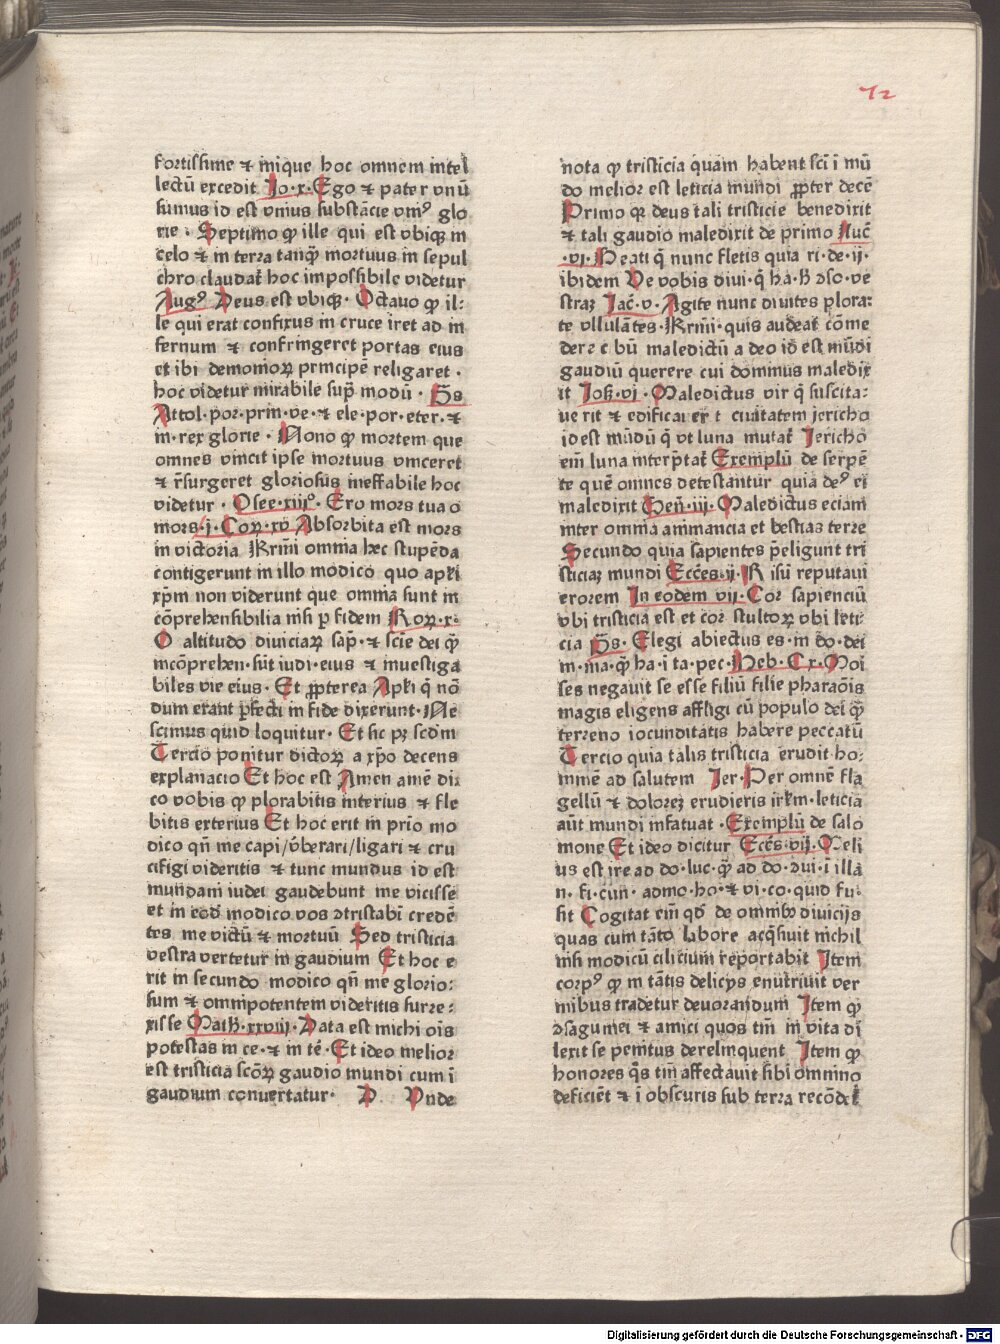 72
fortissime ⁊ inique hoc omnem intel
lectū excedit Io·x·Ego ⁊ pater vnū
sumus id est vnius substācie vniꝰ glo
rie · Septimo ꝙ ille qui est vbiqꝫ in
celo ⁊ in terra tanqᷓ mortuus in sepul
chro claudat̉ hoc impossibile videtur
Augꝰ Deus est vbiqꝫ· Octauo ꝙ il:
le qui erat confixus in cruce iret ad in
fernum ⁊ confringeret portas eius
et ibi demonioꝝ principē religaret ·
hoc videtur mirabile supͣ modū · p̄s
Attol·por·prin·ve·⁊ ele·por·eter·⁊
in·rex glorie · Nono ꝙ mortem que
omnes vincit ipse mortuus vinceret
⁊ r̄surgeret gloriosus ineffabile hoc
videtur · Osee·xiijº· Ero mors tua o
mors·j·Coꝝ·xv Absorbita est mors
in victoria Krm̄i omnia hec stupēda
contigerunt in illo modico quo apl̄i
xp̄m non viderunt que omnia sunt in
cōprehensibilia nisi ꝑ fidem Roꝝ·x·
O altitudo diuiciaꝝ sap̄·⁊ scīe dei qᷓ
incōprehen·sūt iudi·eius ⁊ inuestiga
biles vie eius· Et ꝓpterea Apl̄i q̄ nō
dum erant ꝑfecti in fide dixerunt·Ne
scimus quid loquitur· Et sic pꝫ scd̄m
Tercio ponitur dictoꝝ a xp̄o decens
explanacio Et hoc est Amen amē di:
co vobis ꝙ plorabitis interius ⁊ fle
bitis exterius Et hoc erit in prīo mo
dico qn̄ me capi/v̄berari/ligari ⁊ cru
cifigi videritis ⁊ tunc mundus id est
mundani iudei gaudebunt me vicisse
et in eod̄ modico vos ↄtristabi credē
tes me victū ⁊ mortuū Sed tristicia
vestra vertetur in gaudium Et hoc e
rit in secundo modico qn̄ me glorio:
sum ⁊ omnipotentem videritis surre:
xisse Math·xxviij·Data est michi oīs
potestas in ce·⁊ in tē·Et ideo melior
est tristicia scōꝝ gaudio mundi cum ī
gaudium conuertatur· D Vnde
nota ꝙ tristicia quam habent scī ī mū
do melior est leticia mundi ꝓpter decē
Primo qꝛ deus tali tristicie benedixit
⁊ tali gaudio maledixit de primo Luc̄
·vi·Beati q̄ nunc fletis quia ri·de·ij·
ibidem Ve vobis diui·q̄ ha·h̄ ↄso·ve
straꝫ Iac̄·v·Agite nunc diuites plora:
te vllulātes·Krm̄i·quis audeat̉ cōme
dere c bū maledictū a deo id est mūdi
gaudiū querere cui dominus maledix
it Ioß·vi·Maledictus vir q̄ suscita:
uerit ⁊ edificauerit ciuitatem jericho
id est mūdū q̄ vt luna mutat̉ Jericho
em̄ luna interp̄tat̉ Exemplū de serpē
te quē omnes detestantur quia deꝰ ei
maledixit Gen̄·iij·Maledictus eciam
inter omnia animancia et bestias terre
Secundo quia sapientes p̄eligunt tri
sticiaꝫ mundi Ecc̄es·ij·R isū reputaui
erorem In eodem vij·Cor sapienciū
vbi tristicia est et cor stultoꝝ vbi leti
cia p̄s· Elegi abiectus es·in do·dei
m·ma·qᷓ ha·i ta·pec·Heb·Cx·Moi
ses negauit se esse filiū filie pharaōis
magis eligens affligi cū populo dei qᷓ
terreno iocunditatis habere peccatū
Tercio quia talis tristicia erudit ho:
minē ad salutem Jer·Per omnē fla
gellū ⁊ dolorēꝫ erudieris irl̄m·leticia
aūt mundi infatuat ·Exemplū de salo
mone Et ideo dicitur Ecc̄s·vij·Meli
us est ire ad do·luc·qᷓ ad do·ↄui·ī illā
n·fi·cun·admo·ho·⁊ vi·co·quid fu·
sit Cogitat em̄ qd̄ de omnibꝫ diuicijs
quas cum tāto labore acq̄siuit nichil
nisi modicū ciliciuꝫ reportabit Item
corpꝰ ꝙ in tātis delicijs enutriuit ver
mibus tradetur deuorandum Item ꝙ
ↄsaguinei ⁊ amici quos tm̄ in vita di
lexit se penitus derelinquent Item ꝙ
honores q̄s tm̄ affectauit sibi omnino
deficiēt ⁊ i obscuris sub terra recōdet̉
Digitalisierung gefördert durch die Deutsche Forschungsgemeinschaft · DFG